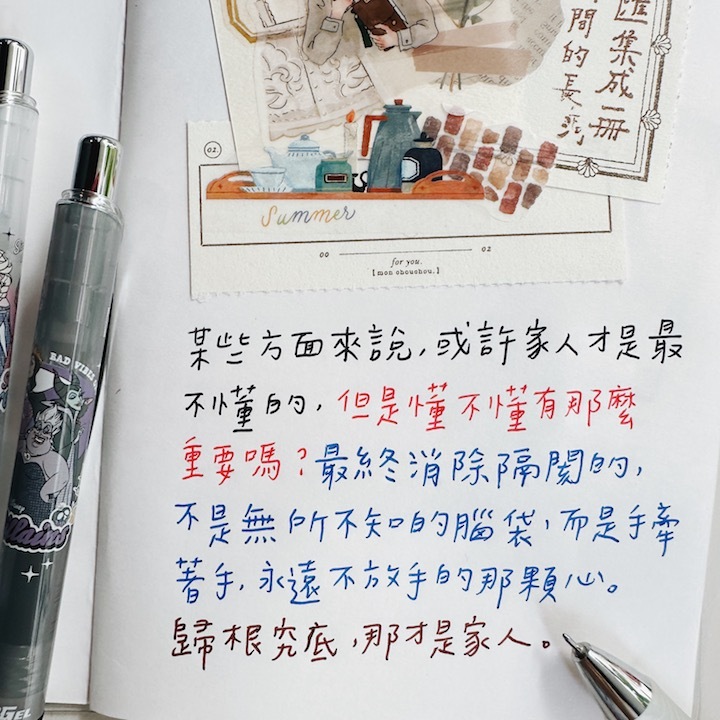 匯集成一冊
間的長河
02.
Summer
00
02
for you.
[mon chouchou.]
BAD VIBES
某些方面來說,或許家人才是最
不懂的,但是懂不懂有那麼
重要嗎?最終消除隔閡的,
不是無所不知的腦袋,而是手牽
著手,永遠不放手的那顆心。
歸根究底,那才是家人。
GEL